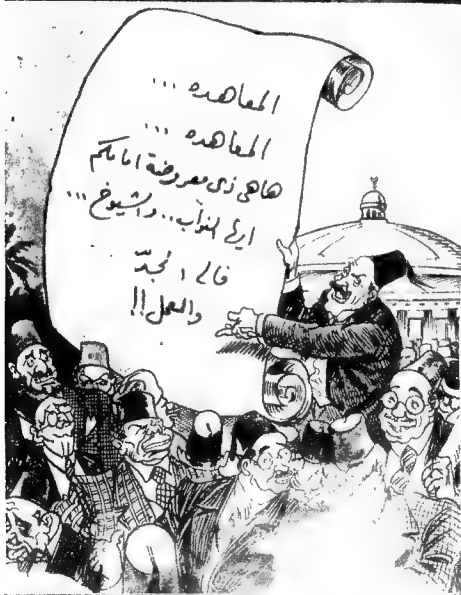 المعاهده ...
المعاهده ...
هاهى ذى معروضة امامكم
ايها النواب .. والشيوخ ...
فالى الجدّ
والعمل !!